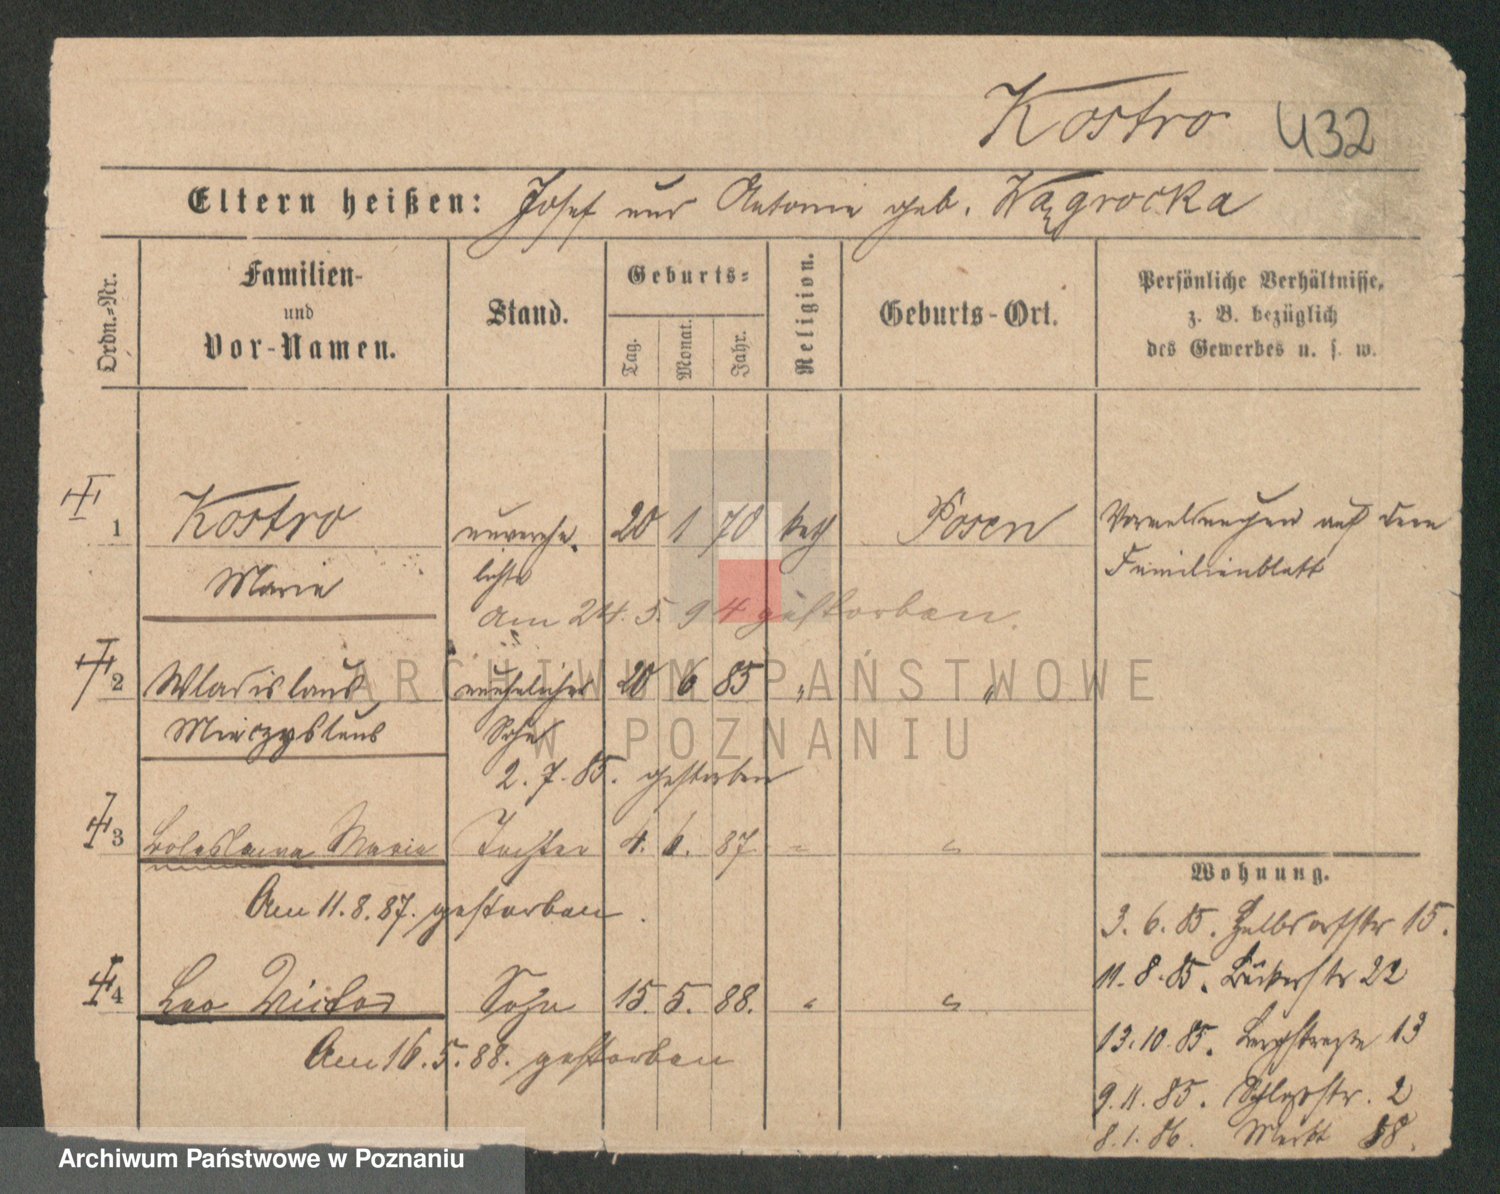 Kostro 432
Eltern heißen: Josef und Antonie geb. Wągrocka
Ordn.-Nr.
Familien-
und
Vor-Namen.
Stand.
Geburts-
Tag.
Monat.
Jahr.
Religion.
Geburts-Ort.
Persönliche Verhältnisse,
z. B. bezüglich
des Gewerbes u. s. w.
1 Kostro unverehe- 20 1 70 kath Posen
Marie lichte
Am 24. 5. 94 gestorben.
auf dem
Familienblatt
2 Wladislaus unehelicher 20 6 85 " "
Mieczyslaus Sohn
2. 7. 85. gestorben
3 Boleslawa Maria Tochter 4. 6. 87 " "
Am 11. 8. 87. gestorben.
4 Leo Victor Sohn 15. 5. 88. " "
Am 16. 5. 88. gestorben
Wohnung.
3. 6. 85. Halbdorfstr 15.
11. 8. 85. Bäckerstr 22
13. 10. 85. Bergstraße 13
9. 11. 85. Schloßstr. 2
8. 1. 86. Markt 88.
ARCHIWUM PAŃSTWOWE
W POZNANIU
Archiwum Państwowe w Poznaniu